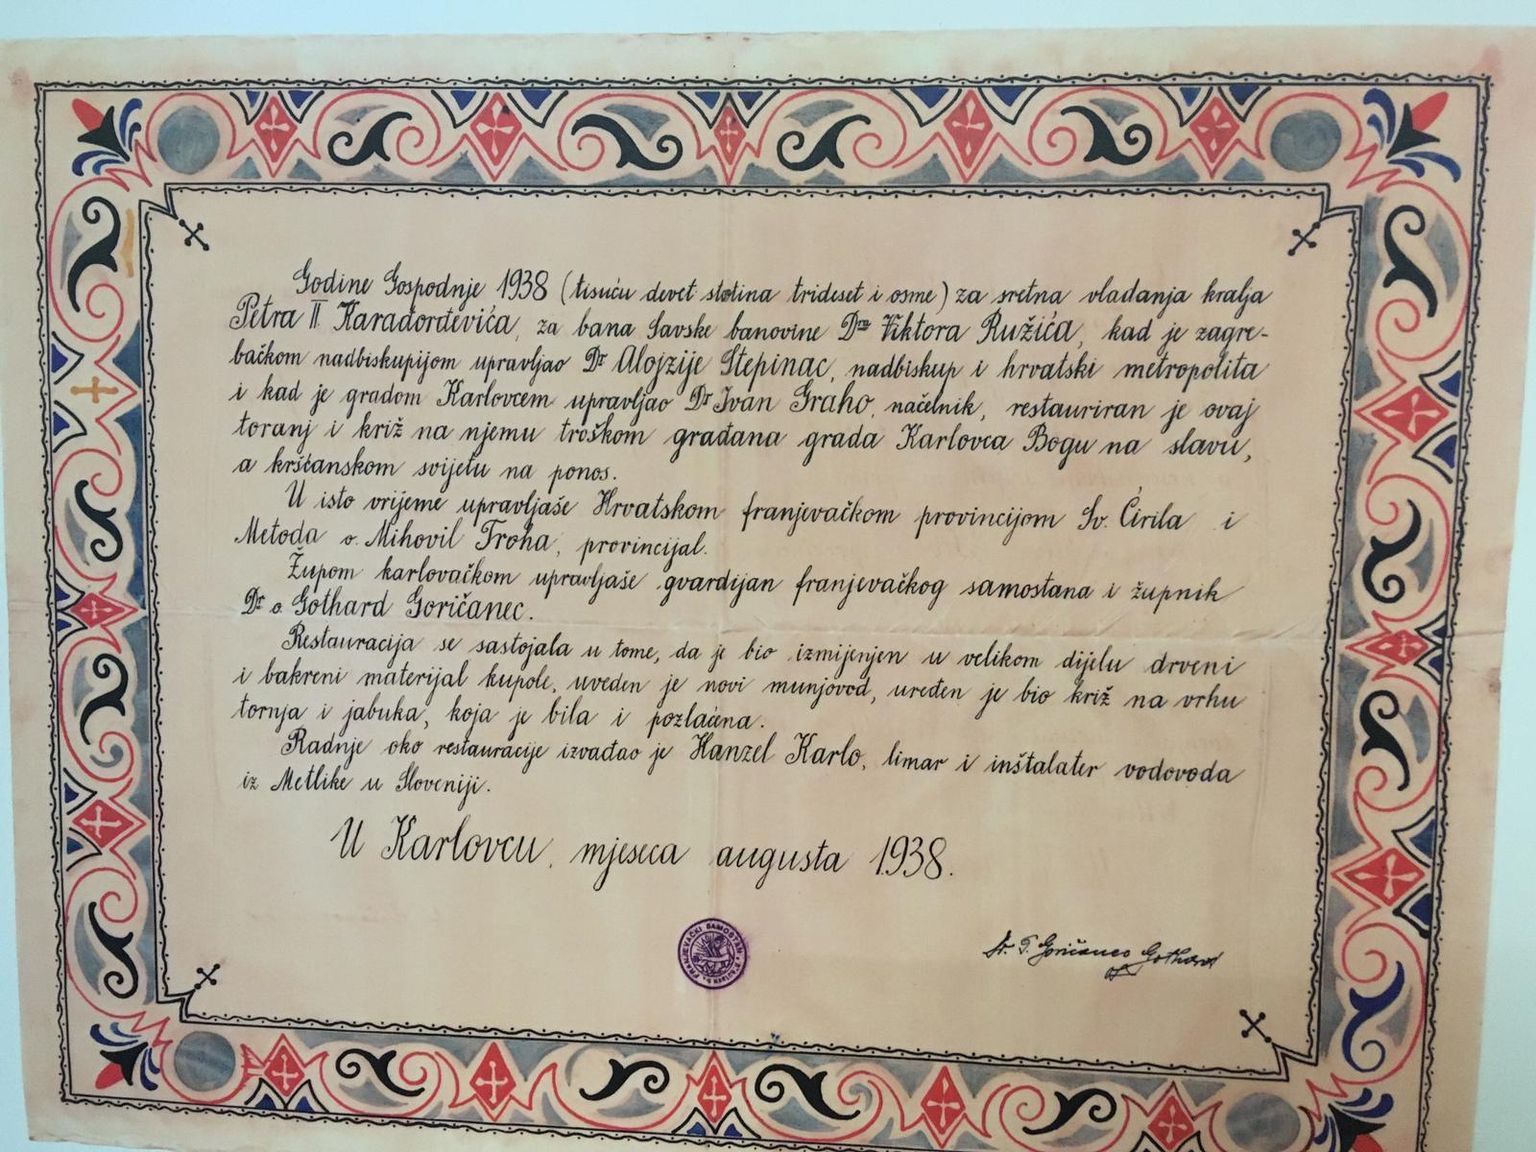 Godine Gospodnje 1938 (tisuću devet stotina trideset i osme) za sretna vladanja kralja
Petra II Karađorđevića, za bana Savske banovine Dra Viktora Ružića, kad je zagre-
bačkom nadbiskupijom upravljao Dr Alojzije Stepinac, nadbiskup i hrvatski metropolita
i kad je gradom Karlovcem upravljao Dr Ivan Graho, načelnik, restauriran je ovaj
toranj i križ na njemu troškom građana grada Karlovca Bogu na slavu,
a kršćanskom svijetu na ponos.
U isto vrijeme upravljaše Hrvatskom franjevačkom provincijom Sv. Ćirila i
Metoda o. Mihovil Troha, provincijal.
Župom karlovačkom upravljaše gvardijan franjevačkog samostana i župnik
Dr o. Gothard Goričanec.
Restauracija se sastojala u tome, da je bio izmijenjen u velikom dijelu drveni
i bakreni materijal kupole, uveden je novi munjovod, uređen je bio križ na vrhu
tornja i jabuka, koja je bila i pozlaćena.
Radnje oko restauracije izvađao je Hanzel Karlo, limar i inštalater vodovoda
iz Metlike u Sloveniji.
U Karlovcu, mjeseca augusta 1938.
FRANJEVAČKI SAMOSTAN
Dr. P. Goričanec Gothard